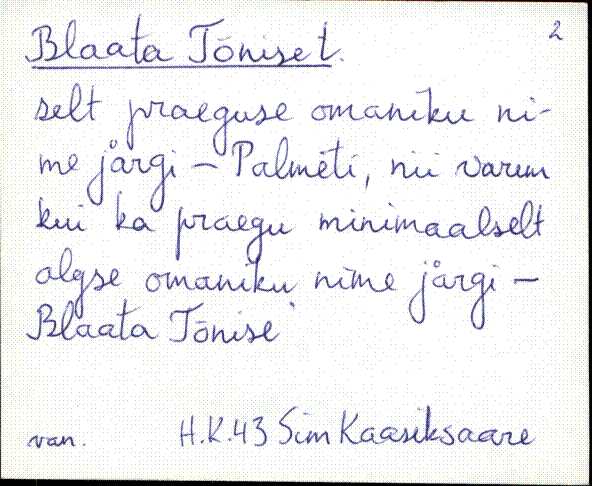 Blaata Tõniset.
2
selt praeguse omaniku ni-
me järgi - Palmëti, nii varem
kui ka praegu minimaalselt
algse omaniku nime järgi -
Blaata Tõnise
van. H.K.43 Sim Kaasiksaare